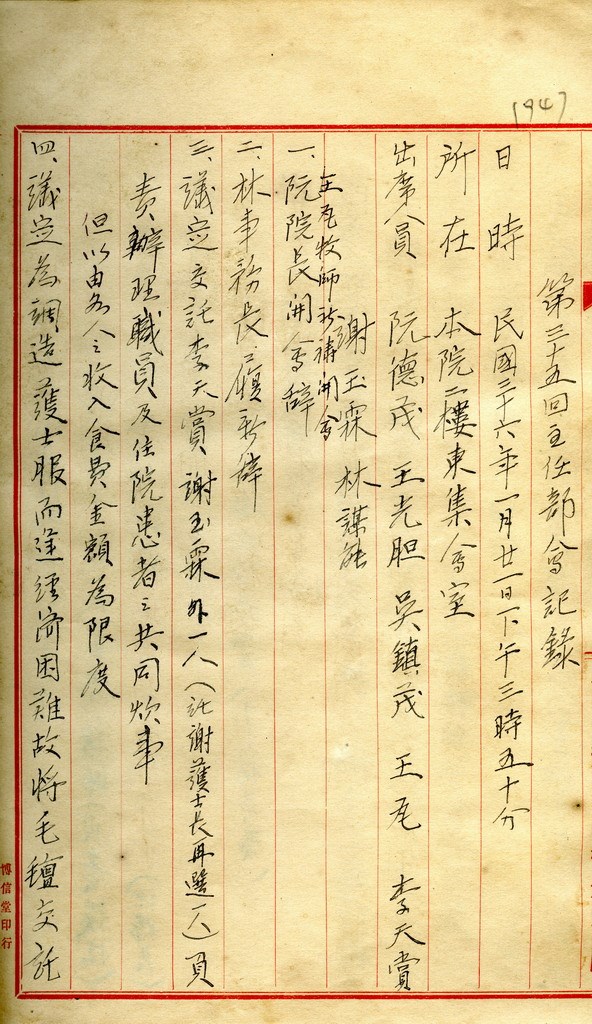 1947
第三十五回主任部會記錄
日時 民國三十六年一月廿一日下午三時五十分
所在 本院二樓東集會室
出席人員 阮德茂 王光胆 吳鎮茂 王瓦 李天賞
謝玉霖 林謀能
王瓦牧師祈禱開會
一、阮院長開會辞
二、林事務長之履新辞
三、議定交託李天賞 謝玉霖外一人(託謝護士長再選一人)負
責辦理職員及住院患者之共同炊事
但以由各人之收入食費金額為限度
四、議定為調造護士服而逢經濟困難故將毛氊交託
博信堂印行